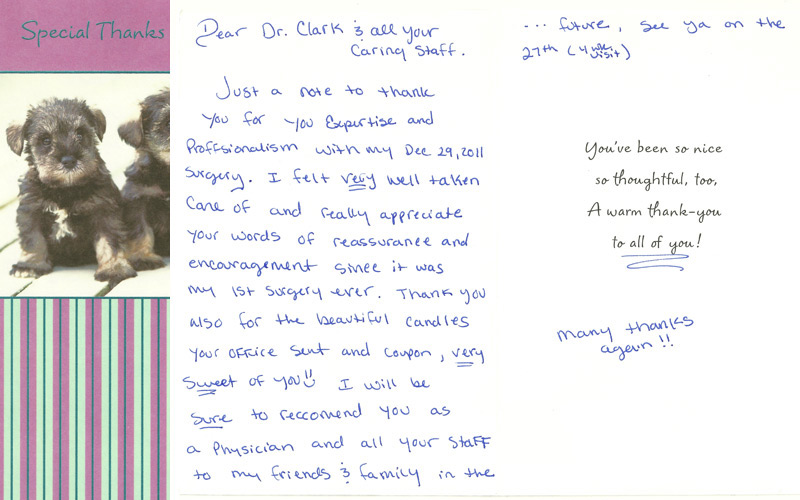 Special Thanks
Dear Dr. Clark & all your
Caring Staff.
Just a note to thank
you for you Expertise and
Proffsionalism with my Dec 29, 2011
Surgery. I felt very well taken
Care of and really appreciate
your words of reassurance and
encouragement since it was
my 1st surgery ever. Thank you
also for the beautiful candles
your office sent and coupon, very
Sweet of you I will be
sure to reccomend you as
a Physician and all your staff
to my friends & family in the
... future, see ya on the
27th (4 wk. visit)
You've been so nice
so thoughtful, too,
A warm thank-you
to all of you!
Many thanks
again!!